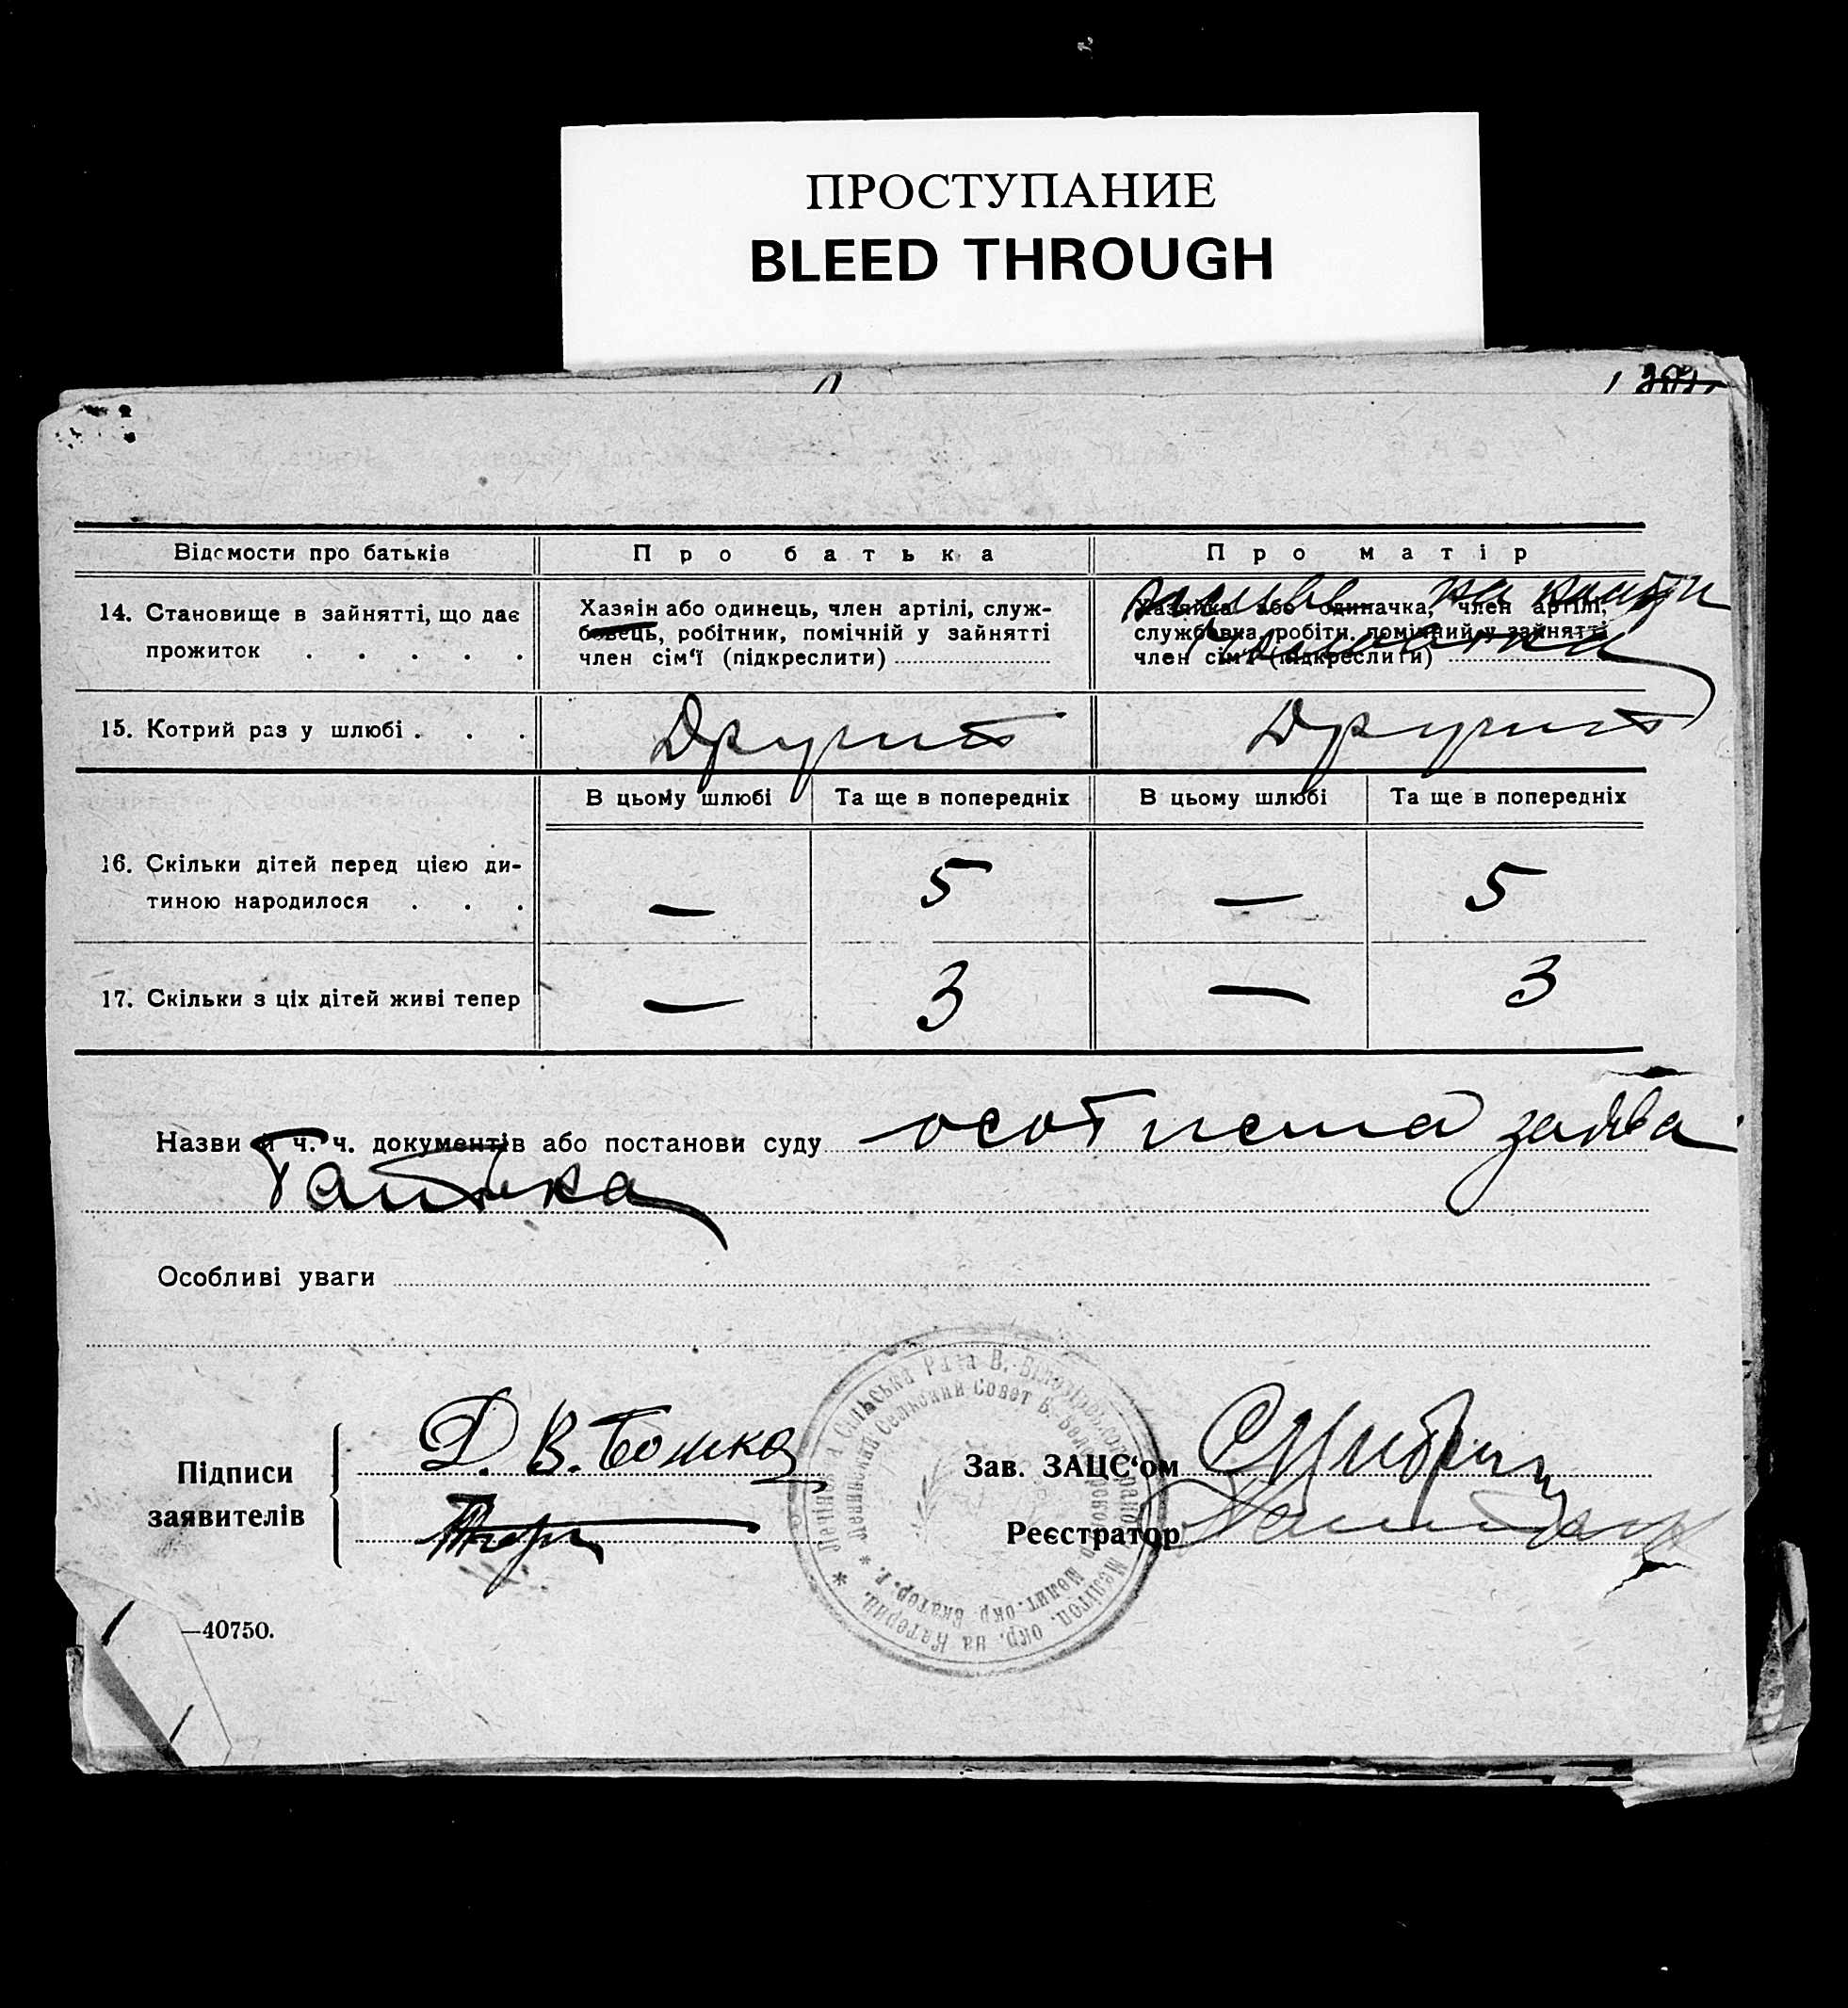 ПРОСТУПАНИЕ
BLEED THROUGH
Відомости про батьків
Про батька
Про матір
14. Становище в зайнятті, що дає
прожиток . . . . .
Хазяїн або одинець, член артілі, служ-
бовець, робітник, помічній у зайнятті
член сім'ї (підкреслити)
живе на кошти
чоловіка
Хазяйка або одиначка, член артілі,
службовка, робітн. помічний у зайнятті
член сім'ї (підкреслити)
15. Котрий раз у шлюбі . . .
Другий
Другий
В цьому шлюбі
Та ще в попередніх
В цьому шлюбі
Та ще в попередніх
16. Скільки дітей перед цією ди-
тиною народилося . . .
— 5 — 5
17. Скільки з ціх дітей живі тепер
— 3 — 3
Назви й ч. ч. документів або постанови суду особиста заява
батька
Особливі уваги
Підписи
заявителів
Д. В. Бошка
Зав. ЗАЦС'ом
Реєстратор
Сільська Рада В.-Білозірського району Мелітоп. окр. на Катерин.
Ленинский Сельский Совет В. Белозерского р. Мелит. окр. Екатер. г.
—40750.